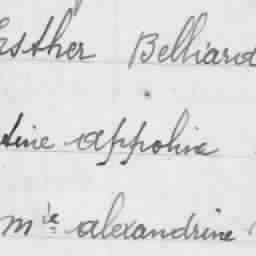 Esther Belliard
tine appoline
mie alexandrine